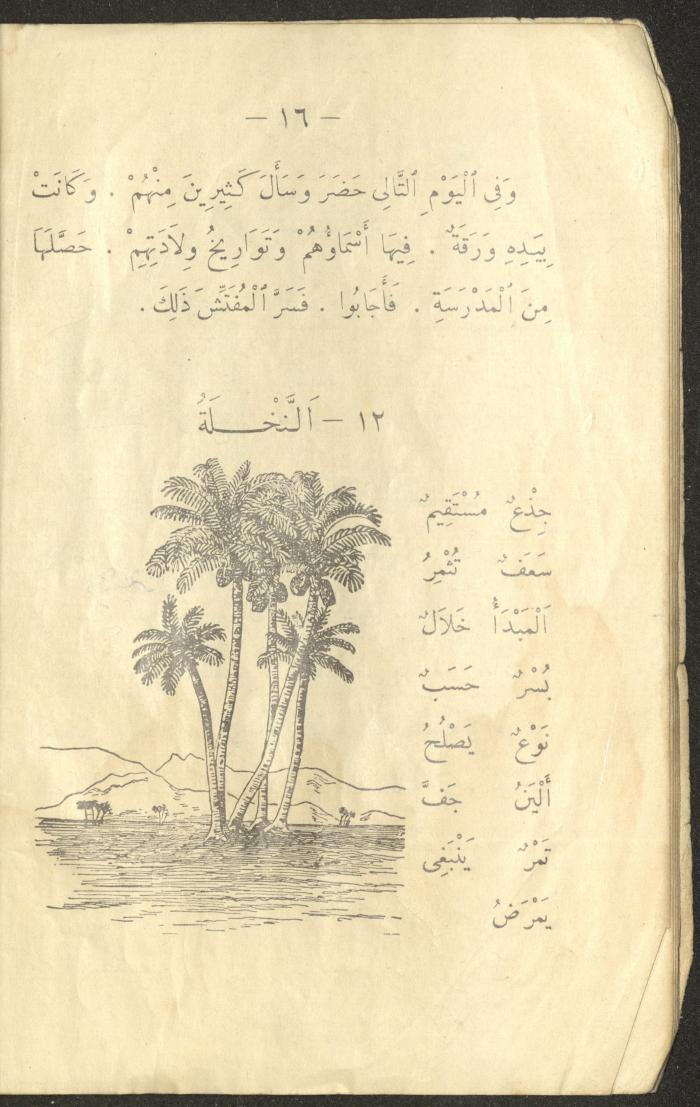 — ١٦ —
وَفِى ٱلْيَوْمِ ٱلتَّالِى حَضَرَ وَسَأَلَ كَثِيرِينَ مِنْهُمْ . وَكَانَتْ
بِيَدِهِ وَرَقَةٌ . فِيهَا أَسْمَاؤُهُمْ وَتَوَارِيخُ وِلَادَتِهِمْ . حَصَّلَهَا
مِنَ ٱلْمَدْرَسَةِ . فَأَجَابُوا . فَسَرَّ ٱلْمُفَتِّشَ ذَلِكَ .
١٢ — اَلنَّخْلَةُ
جِذْعٌ مُسْتَقِيمٌ
سَعَفٌ تُثْمِرُ
اَلْمَبْدَأُ خَلَالٌ
بُسْرٌ حَسَبٌ
نَوْعٌ يَصْلُحُ
أَلْيَنُ جَفَّ
تَمْرٌ يَنْبَغِى
يَمْرَضُ